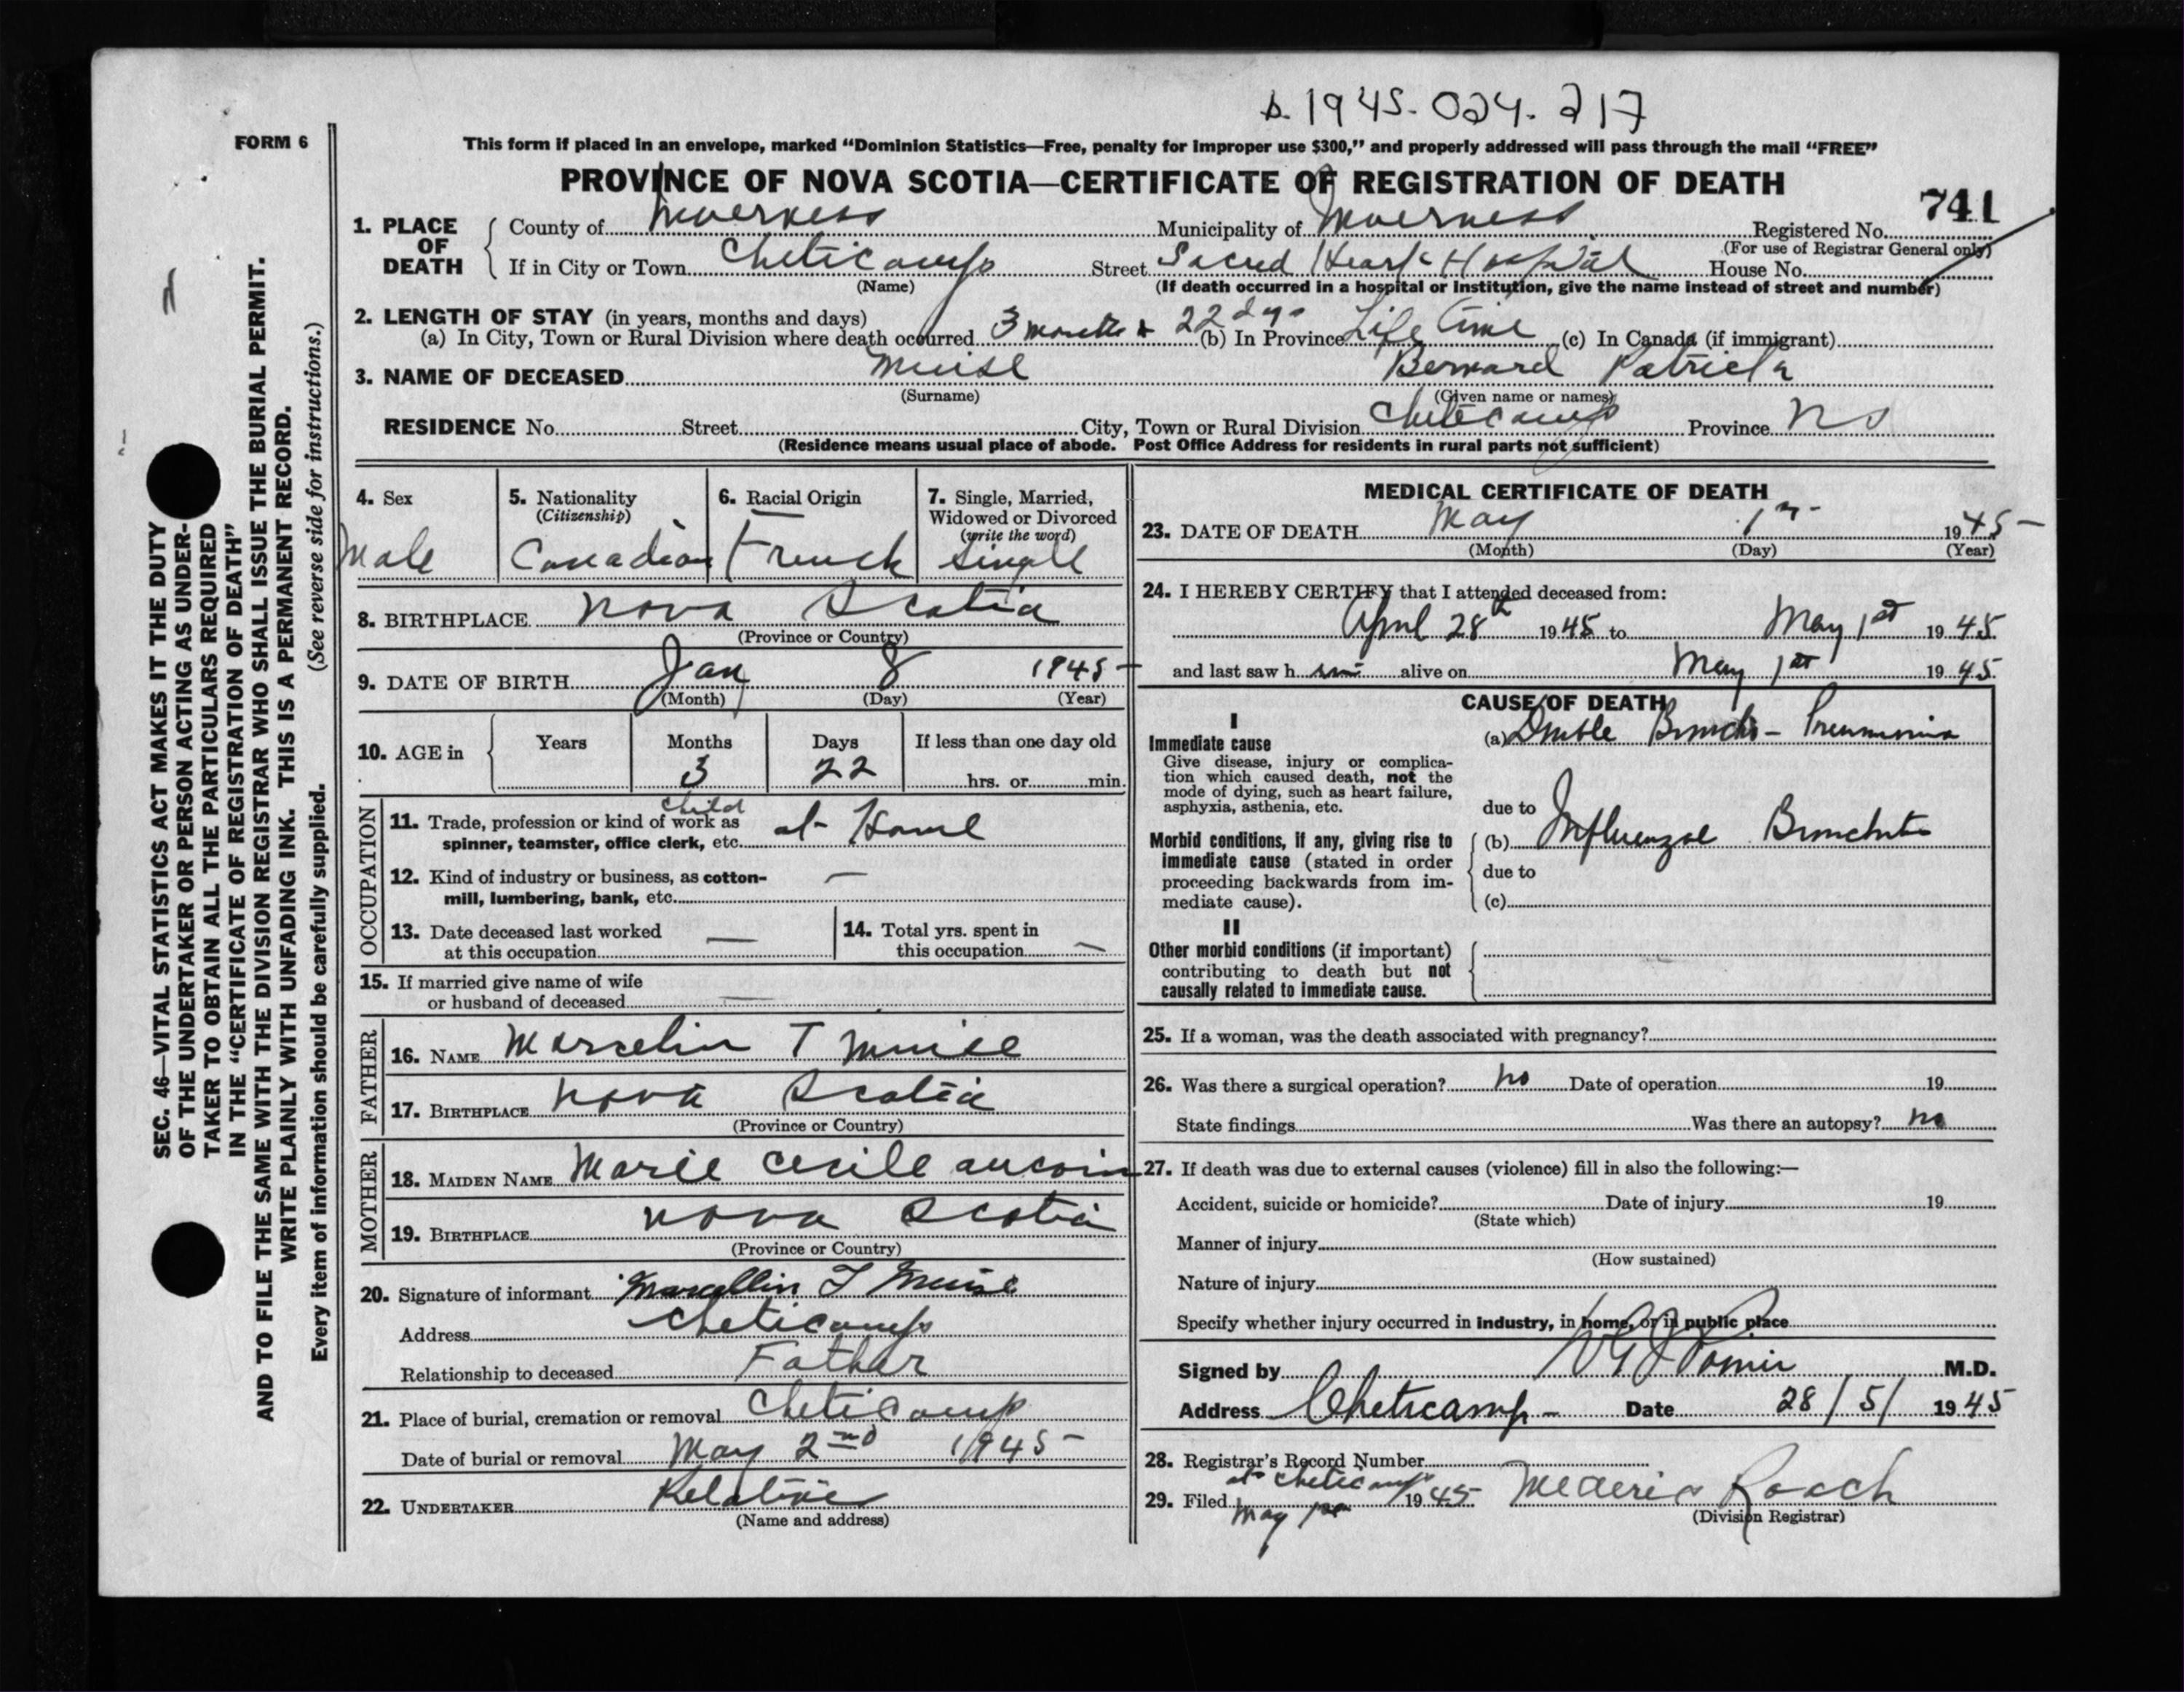 b. 1945-024-217
FORM 6
This form if placed in an envelope, marked “Dominion Statistics—Free, penalty for improper use $300,” and properly addressed will pass through the mail “FREE”
PROVINCE OF NOVA SCOTIA—CERTIFICATE OF REGISTRATION OF DEATH
741
1. PLACE OF DEATH { County of Inverness Municipality of Inverness Registered No.
(For use of Registrar General only)
If in City or Town Cheticamp Street Sacred Heart Hospital House No.
(Name) (If death occurred in a hospital or institution, give the name instead of street and number)
2. LENGTH OF STAY (in years, months and days)
(a) In City, Town or Rural Division where death occurred 3 months & 22 dys (b) In Province Life time (c) In Canada (if immigrant)
3. NAME OF DECEASED Muise Bernard Patrick
(Surname) (Given name or names)
RESIDENCE No. Street City, Town or Rural Division Cheticamp Province NS
(Residence means usual place of abode. Post Office Address for residents in rural parts not sufficient)
4. Sex
Male
5. Nationality
(Citizenship)
Canadian
6. Racial Origin
French
7. Single, Married,
Widowed or Divorced
(write the word)
Single
8. BIRTHPLACE Nova Scotia
(Province or Country)
9. DATE OF BIRTH Jan 8 1945
(Month) (Day) (Year)
10. AGE in { Years Months Days If less than one day old
3 22 hrs. or min.
OCCUPATION
11. Trade, profession or kind of work as
spinner, teamster, office clerk, etc. child at Home
12. Kind of industry or business, as cotton-
mill, lumbering, bank, etc. —
13. Date deceased last worked
at this occupation —
14. Total yrs. spent in
this occupation —
15. If married give name of wife
or husband of deceased —
FATHER
16. NAME Marcelin T Muise
17. BIRTHPLACE Nova Scotia
(Province or Country)
MOTHER
18. MAIDEN NAME Marie Cecile Aucoin
19. BIRTHPLACE Nova Scotia
(Province or Country)
20. Signature of informant Marcellin T Muise
Address Cheticamp
Relationship to deceased Father
21. Place of burial, cremation or removal Cheticamp
Date of burial or removal May 2nd 1945
22. UNDERTAKER Relatives
(Name and address)
MEDICAL CERTIFICATE OF DEATH
23. DATE OF DEATH May 1st 1945
(Month) (Day) (Year)
24. I HEREBY CERTIFY that I attended deceased from:
April 28th 1945 to May 1st 1945
and last saw h im alive on May 1st 1945
CAUSE OF DEATH
I
Immediate cause
Give disease, injury or complica-
tion which caused death, not the
mode of dying, such as heart failure,
asphyxia, asthenia, etc.
(a) Double Broncho-Pneumonia
due to
Morbid conditions, if any, giving rise to
immediate cause (stated in order
proceeding backwards from im-
mediate cause).
(b) Influenzae Bronchitis
due to
(c)
II
Other morbid conditions (if important)
contributing to death but not
causally related to immediate cause.
25. If a woman, was the death associated with pregnancy?
26. Was there a surgical operation? no Date of operation 19
State findings Was there an autopsy? no
27. If death was due to external causes (violence) fill in also the following:—
Accident, suicide or homicide? Date of injury 19
(State which)
Manner of injury
(How sustained)
Nature of injury
Specify whether injury occurred in industry, in home, or in public place
Signed by M.D.
Address Cheticamp - Date 28/5/ 1945
28. Registrar's Record Number
29. Filed at Cheticamp May 1st 1945 Mederic Roach
(Division Registrar)
SEC. 46—VITAL STATISTICS ACT MAKES IT THE DUTY
OF THE UNDERTAKER OR PERSON ACTING AS UNDER-
TAKER TO OBTAIN ALL THE PARTICULARS REQUIRED
IN THE “CERTIFICATE OF REGISTRATION OF DEATH”
AND TO FILE THE SAME WITH THE DIVISION REGISTRAR WHO SHALL ISSUE THE BURIAL PERMIT.
WRITE PLAINLY WITH UNFADING INK. THIS IS A PERMANENT RECORD.
Every item of information should be carefully supplied. (See reverse side for instructions.)